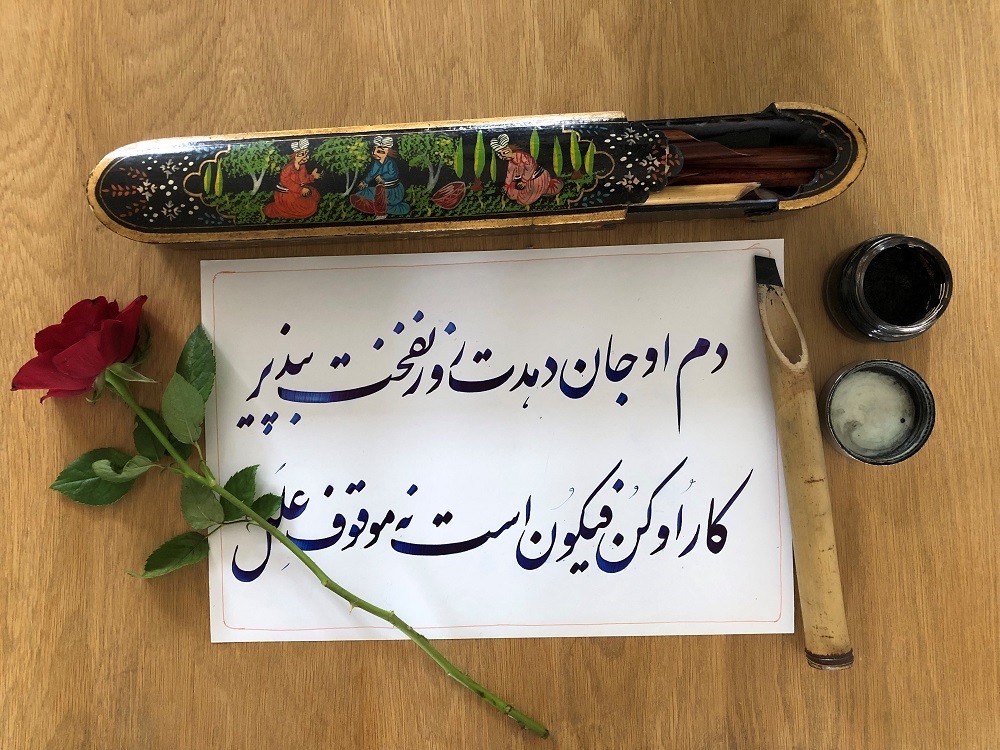 دم او جان دهدت رو ز نفخت بپذیر
کار اُو کُن فیکُونُ است نه موقوف عَلِل